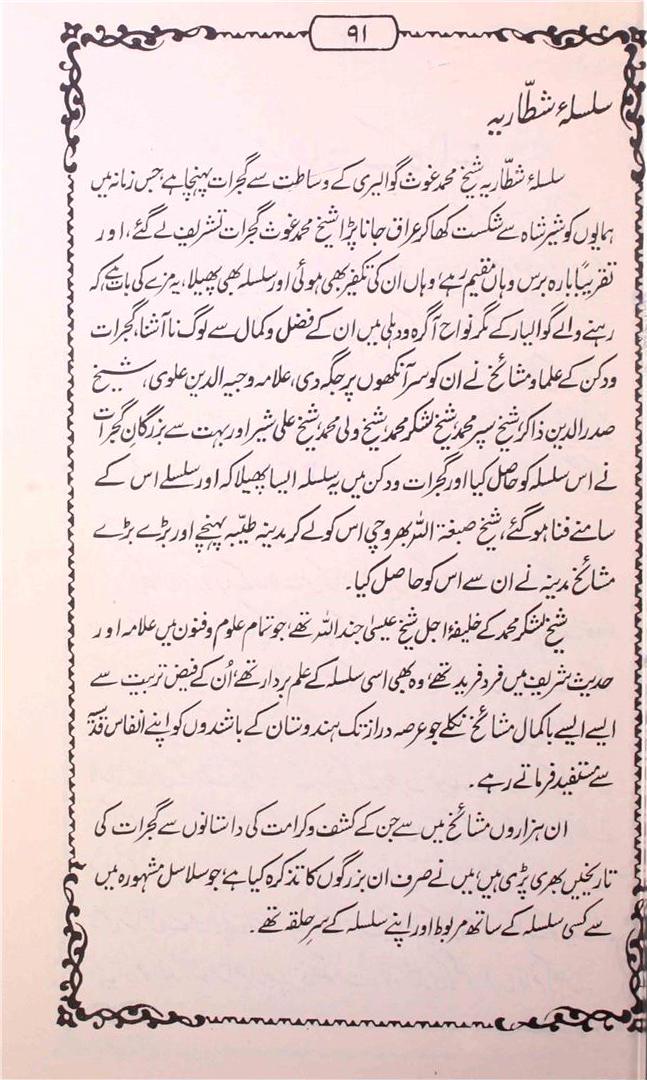 ۹۱
سلسلۂ شطّاریہ
سلسلۂ شطّاریہ شیخ محمد غوث گوالیری کے وساطت سے گجرات پہنچا ہے، جس زمانہ میں
ہمایوں کو شیر شاہ سے شکست کھا کر عراق جانا پڑا شیخ محمد غوث گجرات تشریف لے گئے، اور
تقریباً بارہ برس وہاں مقیم رہے، وہاں ان کی تکفیر بھی ہوئی اور سلسلہ بھی پھیلا، یہ مزے کی بات ہے کہ
رہنے والے گوالیار کے مگر نواح آگرہ و دہلی میں ان کے فضل و کمال سے لوگ نا آشنا، گجرات
و دکن کے علما و مشائخ نے ان کو سر آنکھوں پر جگہ دی، علامہ وجیہ الدین علوی، شیخ
صدر الدین ذاکر، شیخ سپر محمد، شیخ لشکر محمد، شیخ ولی محمد، شیخ علی شیر اور بہت سے بزرگان گجرات
نے اس سلسلہ کو حاصل کیا اور گجرات و دکن میں یہ سلسلہ ایسا پھیلا کہ اور سلسلے اس کے
سامنے فنا ہو گئے، شیخ صبغۃ اللہ بھروچی اس کو لے کر مدینہ طیّبہ پہنچے اور بڑے بڑے
مشائخ مدینہ نے ان سے اس کو حاصل کیا۔
شیخ لشکر محمد کے خلیفۂ اجل شیخ عیسیٰ جند اللہ تھے، جو تمام علوم و فنون میں علامہ اور
حدیث شریف میں فرد فرید تھے، وہ بھی اسی سلسلہ کے علم بردار تھے، اُن کے فیض تربیت سے
ایسے ایسے باکمال مشائخ نکلے جو عرصہ دراز تک ہندوستان کے باشندوں کو اپنے انفاس قدسیہ
سے مستفید فرماتے رہے۔
ان ہزاروں مشائخ میں سے جن کے کشف و کرامت کی داستانوں سے گجرات کی
تاریخیں بھری پڑی ہیں، میں نے صرف ان بزرگوں کا تذکرہ کیا ہے، جو سلاسل مشہورہ میں
سے کسی سلسلہ کے ساتھ مربوط اور اپنے سلسلہ کے سرِ حلقہ تھے۔